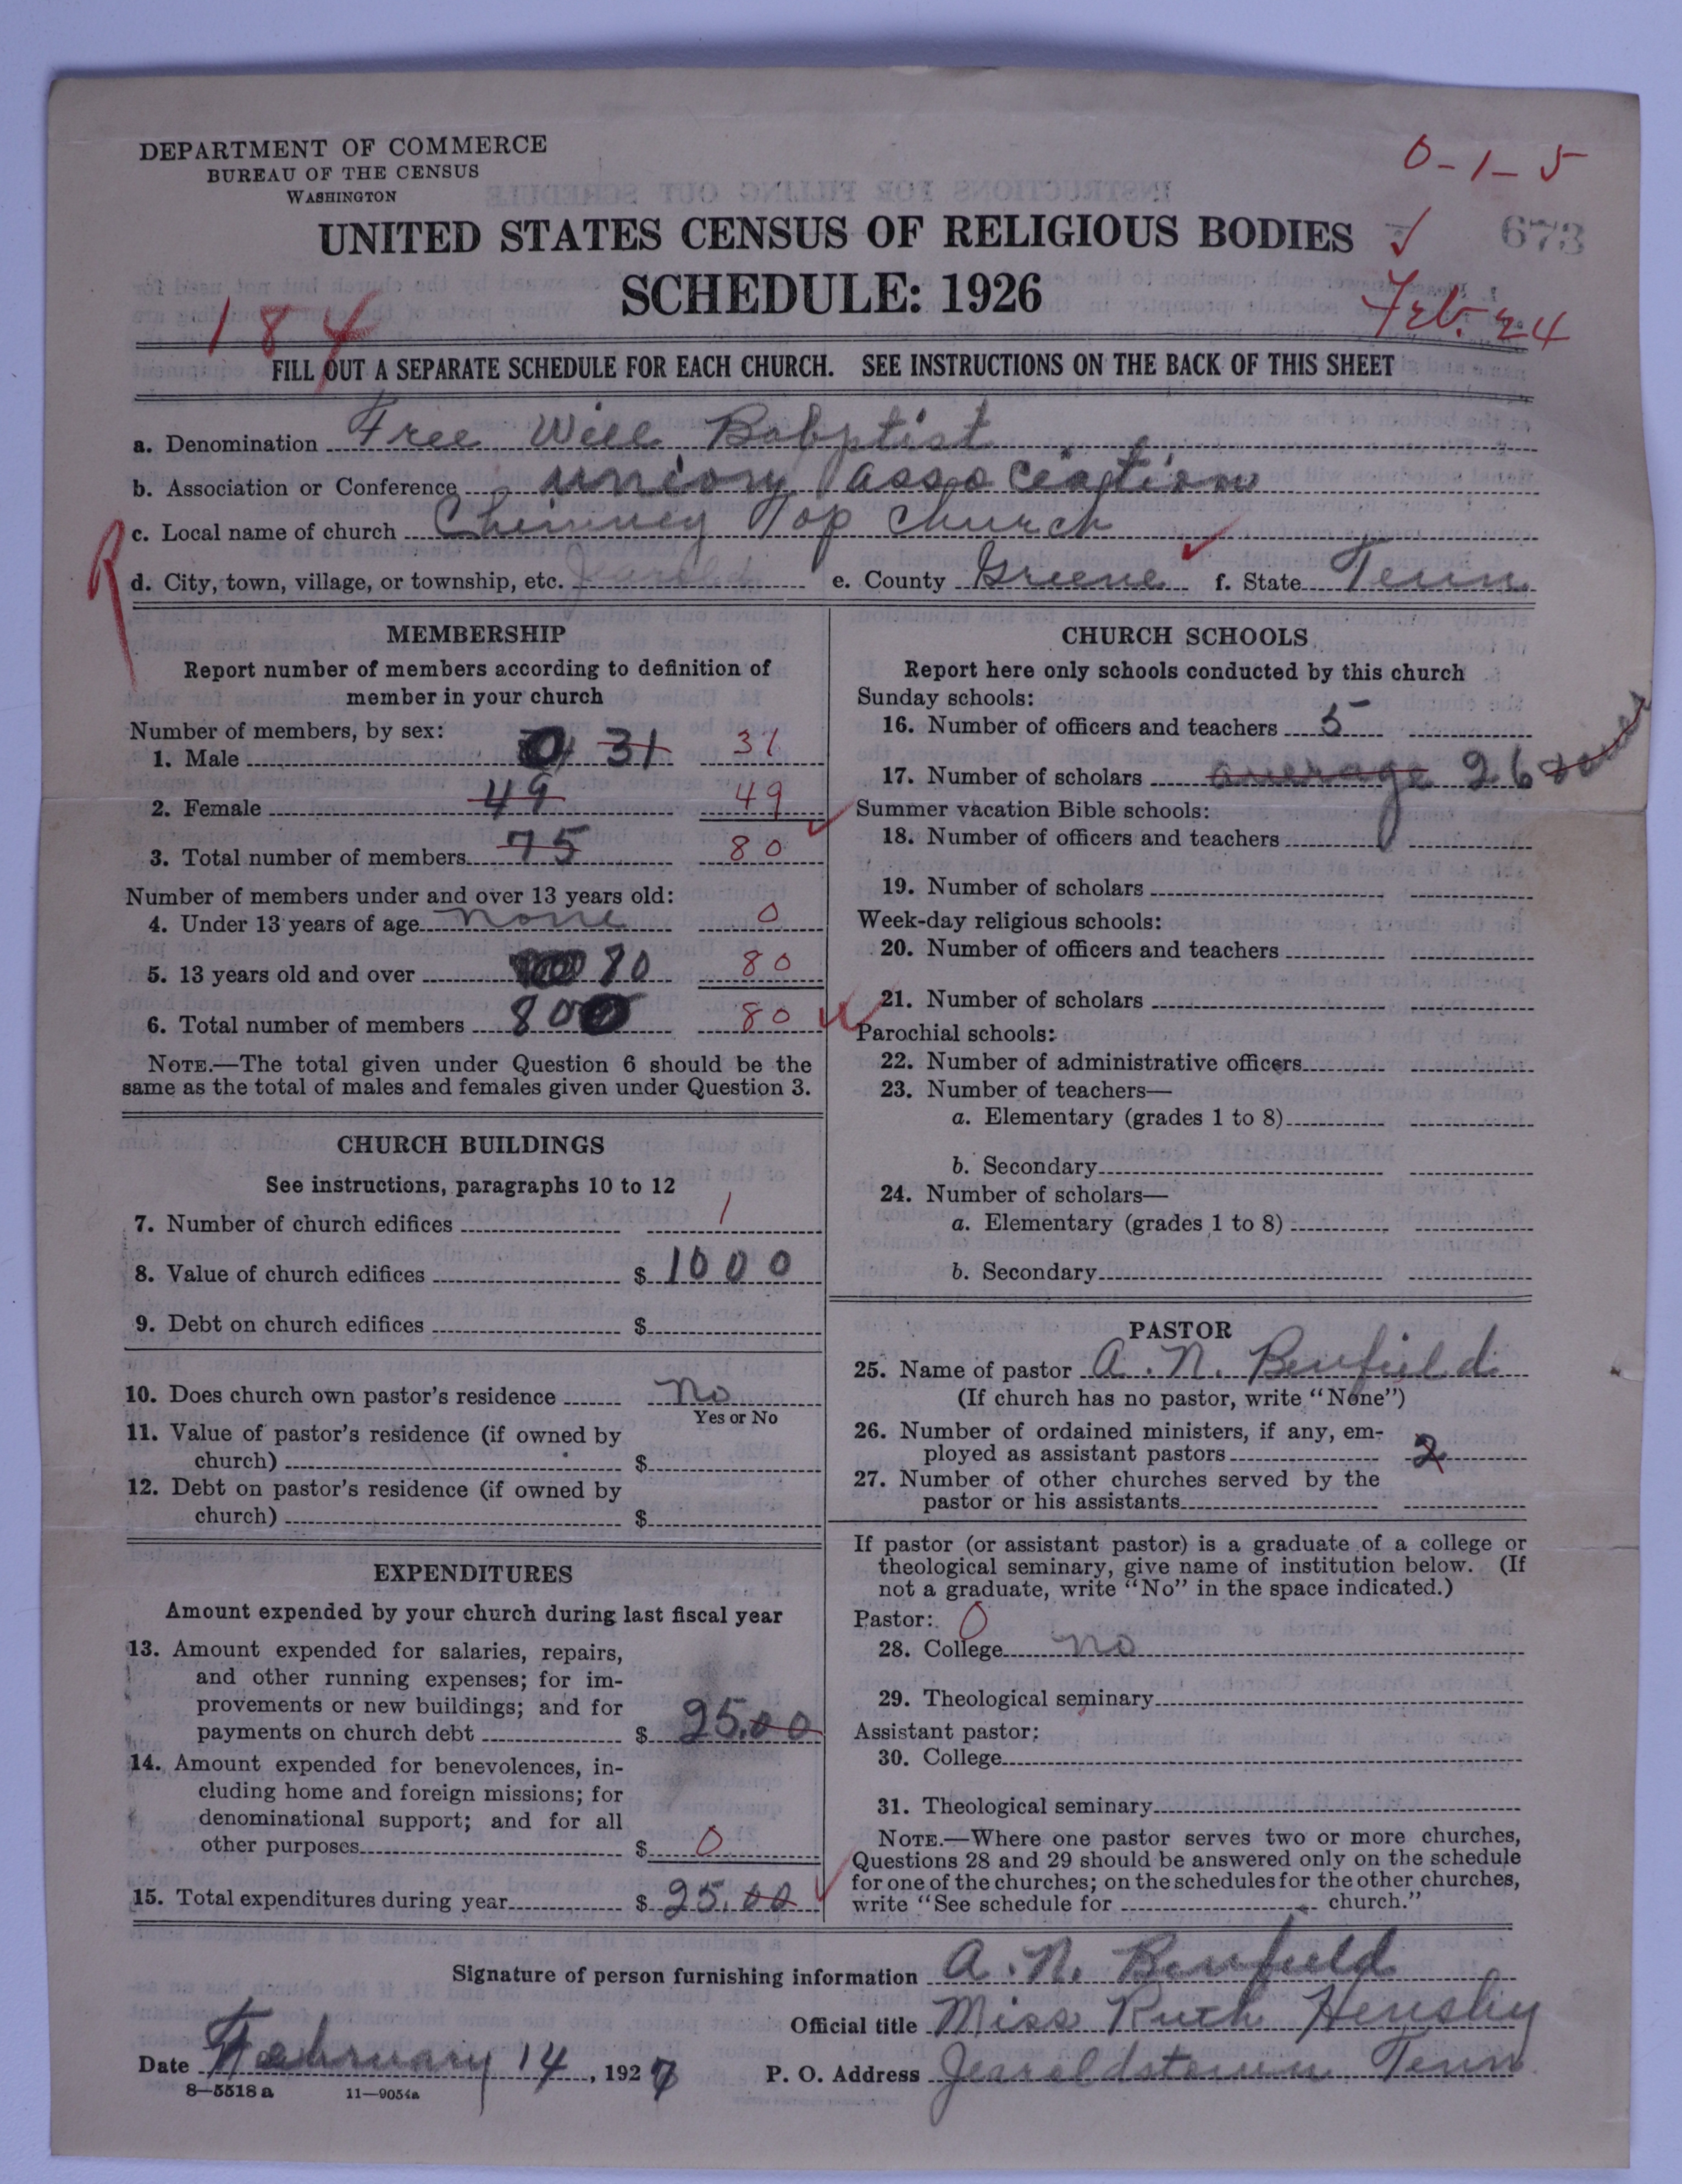 DEPARTMENT OF COMMERCE
BUREAU OF THE CENSUS
WASHINGTON
0-1-5
UNITED STATES CENSUS OF RELIGIOUS BODIES
673
SCHEDULE: 1926
Feb. 24
184
FILL OUT A SEPARATE SCHEDULE FOR EACH CHURCH. SEE INSTRUCTIONS ON THE BACK OF THIS SHEET
a. Denomination Free Will Babptist
b. Association or Conference union association
c. Local name of church Chimney Top church
d. City, town, village, or township, etc. Jearold e. County Greene f. State Tenn
R
MEMBERSHIP
Report number of members according to definition of
member in your church
Number of members, by sex:
1. Male 31 31
2. Female 49 49
3. Total number of members 75 80
Number of members under and over 13 years old:
4. Under 13 years of age none 0
5. 13 years old and over 80 80
6. Total number of members 80 80
NOTE.—The total given under Question 6 should be the
same as the total of males and females given under Question 3.
CHURCH BUILDINGS
See instructions, paragraphs 10 to 12
7. Number of church edifices 1
8. Value of church edifices $ 1000
9. Debt on church edifices $
10. Does church own pastor's residence No
Yes or No
11. Value of pastor's residence (if owned by
church) $
12. Debt on pastor's residence (if owned by
church) $
EXPENDITURES
Amount expended by your church during last fiscal year
13. Amount expended for salaries, repairs,
and other running expenses; for im-
provements or new buildings; and for
payments on church debt $ 25.00
14. Amount expended for benevolences, in-
cluding home and foreign missions; for
denominational support; and for all
other purposes $ 0
15. Total expenditures during year $ 25.00
CHURCH SCHOOLS
Report here only schools conducted by this church
Sunday schools:
16. Number of officers and teachers 5
17. Number of scholars average 26
Summer vacation Bible schools:
18. Number of officers and teachers
19. Number of scholars
Week-day religious schools:
20. Number of officers and teachers
21. Number of scholars
Parochial schools:
22. Number of administrative officers
23. Number of teachers—
a. Elementary (grades 1 to 8)
b. Secondary
24. Number of scholars—
a. Elementary (grades 1 to 8)
b. Secondary
PASTOR
25. Name of pastor A. N. Benfield
(If church has no pastor, write "None")
26. Number of ordained ministers, if any, em-
ployed as assistant pastors 2
27. Number of other churches served by the
pastor or his assistants
If pastor (or assistant pastor) is a graduate of a college or
theological seminary, give name of institution below. (If
not a graduate, write "No" in the space indicated.)
Pastor: 0
28. College no
29. Theological seminary
Assistant pastor:
30. College
31. Theological seminary
NOTE.—Where one pastor serves two or more churches,
Questions 28 and 29 should be answered only on the schedule
for one of the churches; on the schedules for the other churches,
write "See schedule for church."
Signature of person furnishing information A. N. Benfield
Official title Miss Ruth Hensley
Date February 14, 1927 P. O. Address Jearoldstown Tenn
8—5518 a 11—9054a